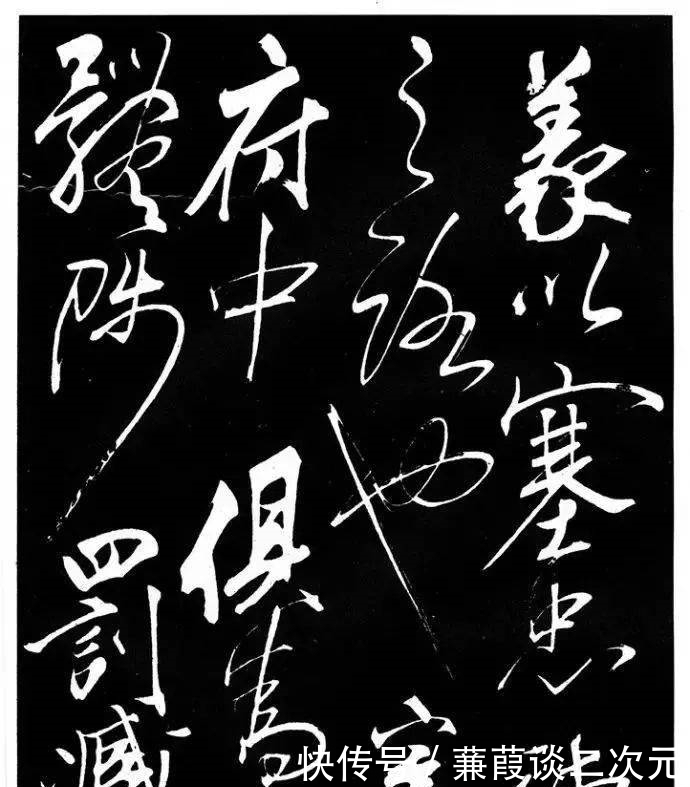 義以塞忠
之路也宮
府中俱為
體陟罰臧
快传号 / 蒹葭谈二次元